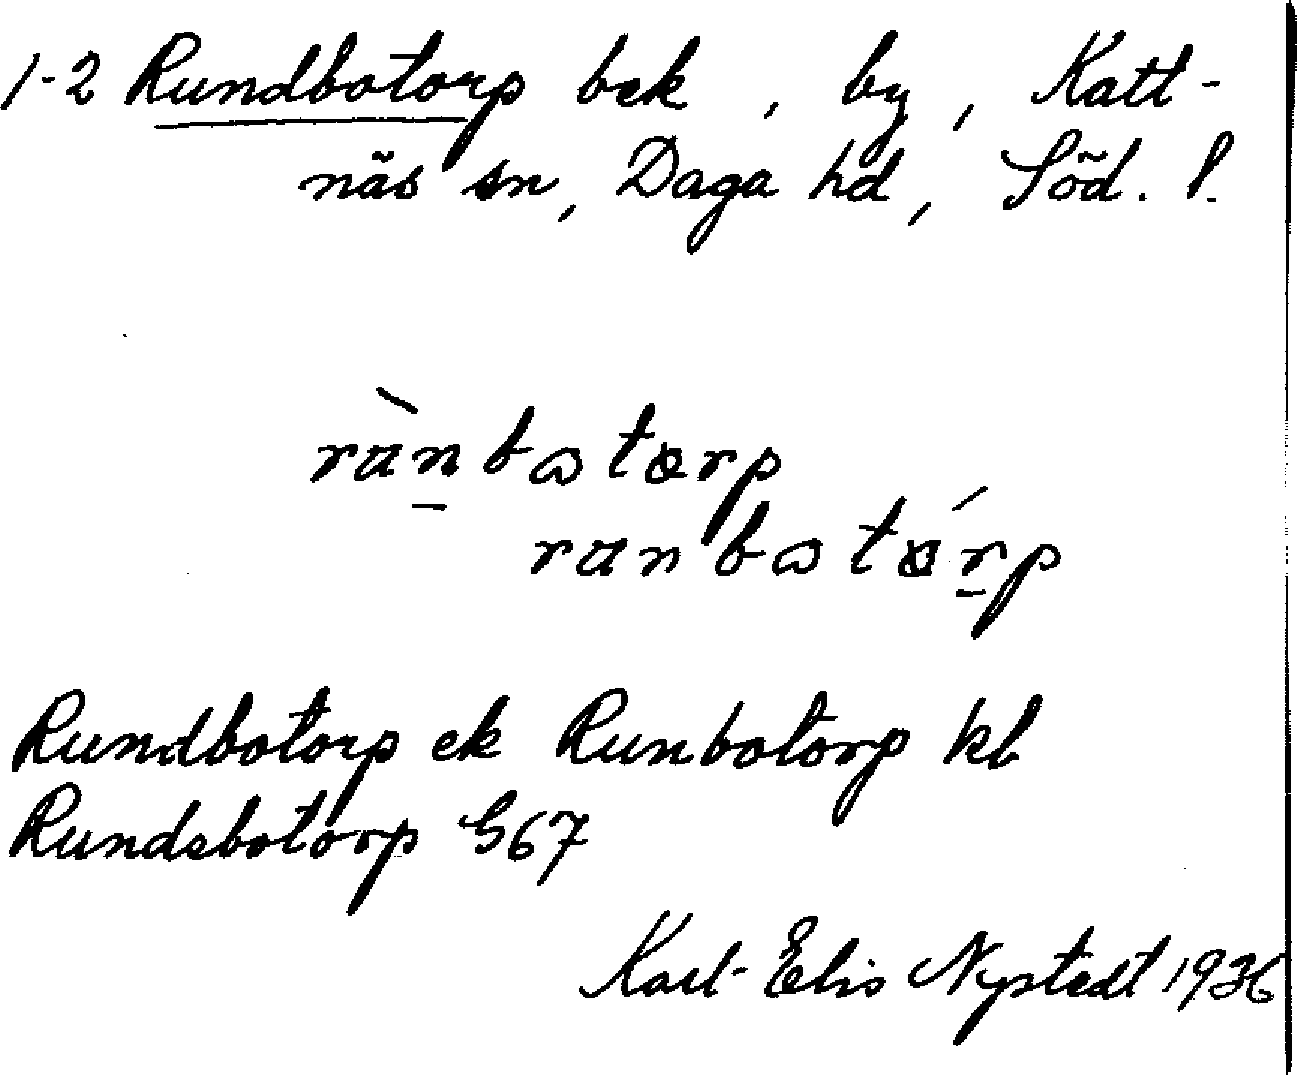 1-2 Rundbotorp bek, by, Katt-
näs sn, Daga hd, Söd. l.
rùnbatorp
runbatórp
Rundbotorp ek Runbotorp kb
Rundebotorp G67
Karl-Elis Nystedt 1936